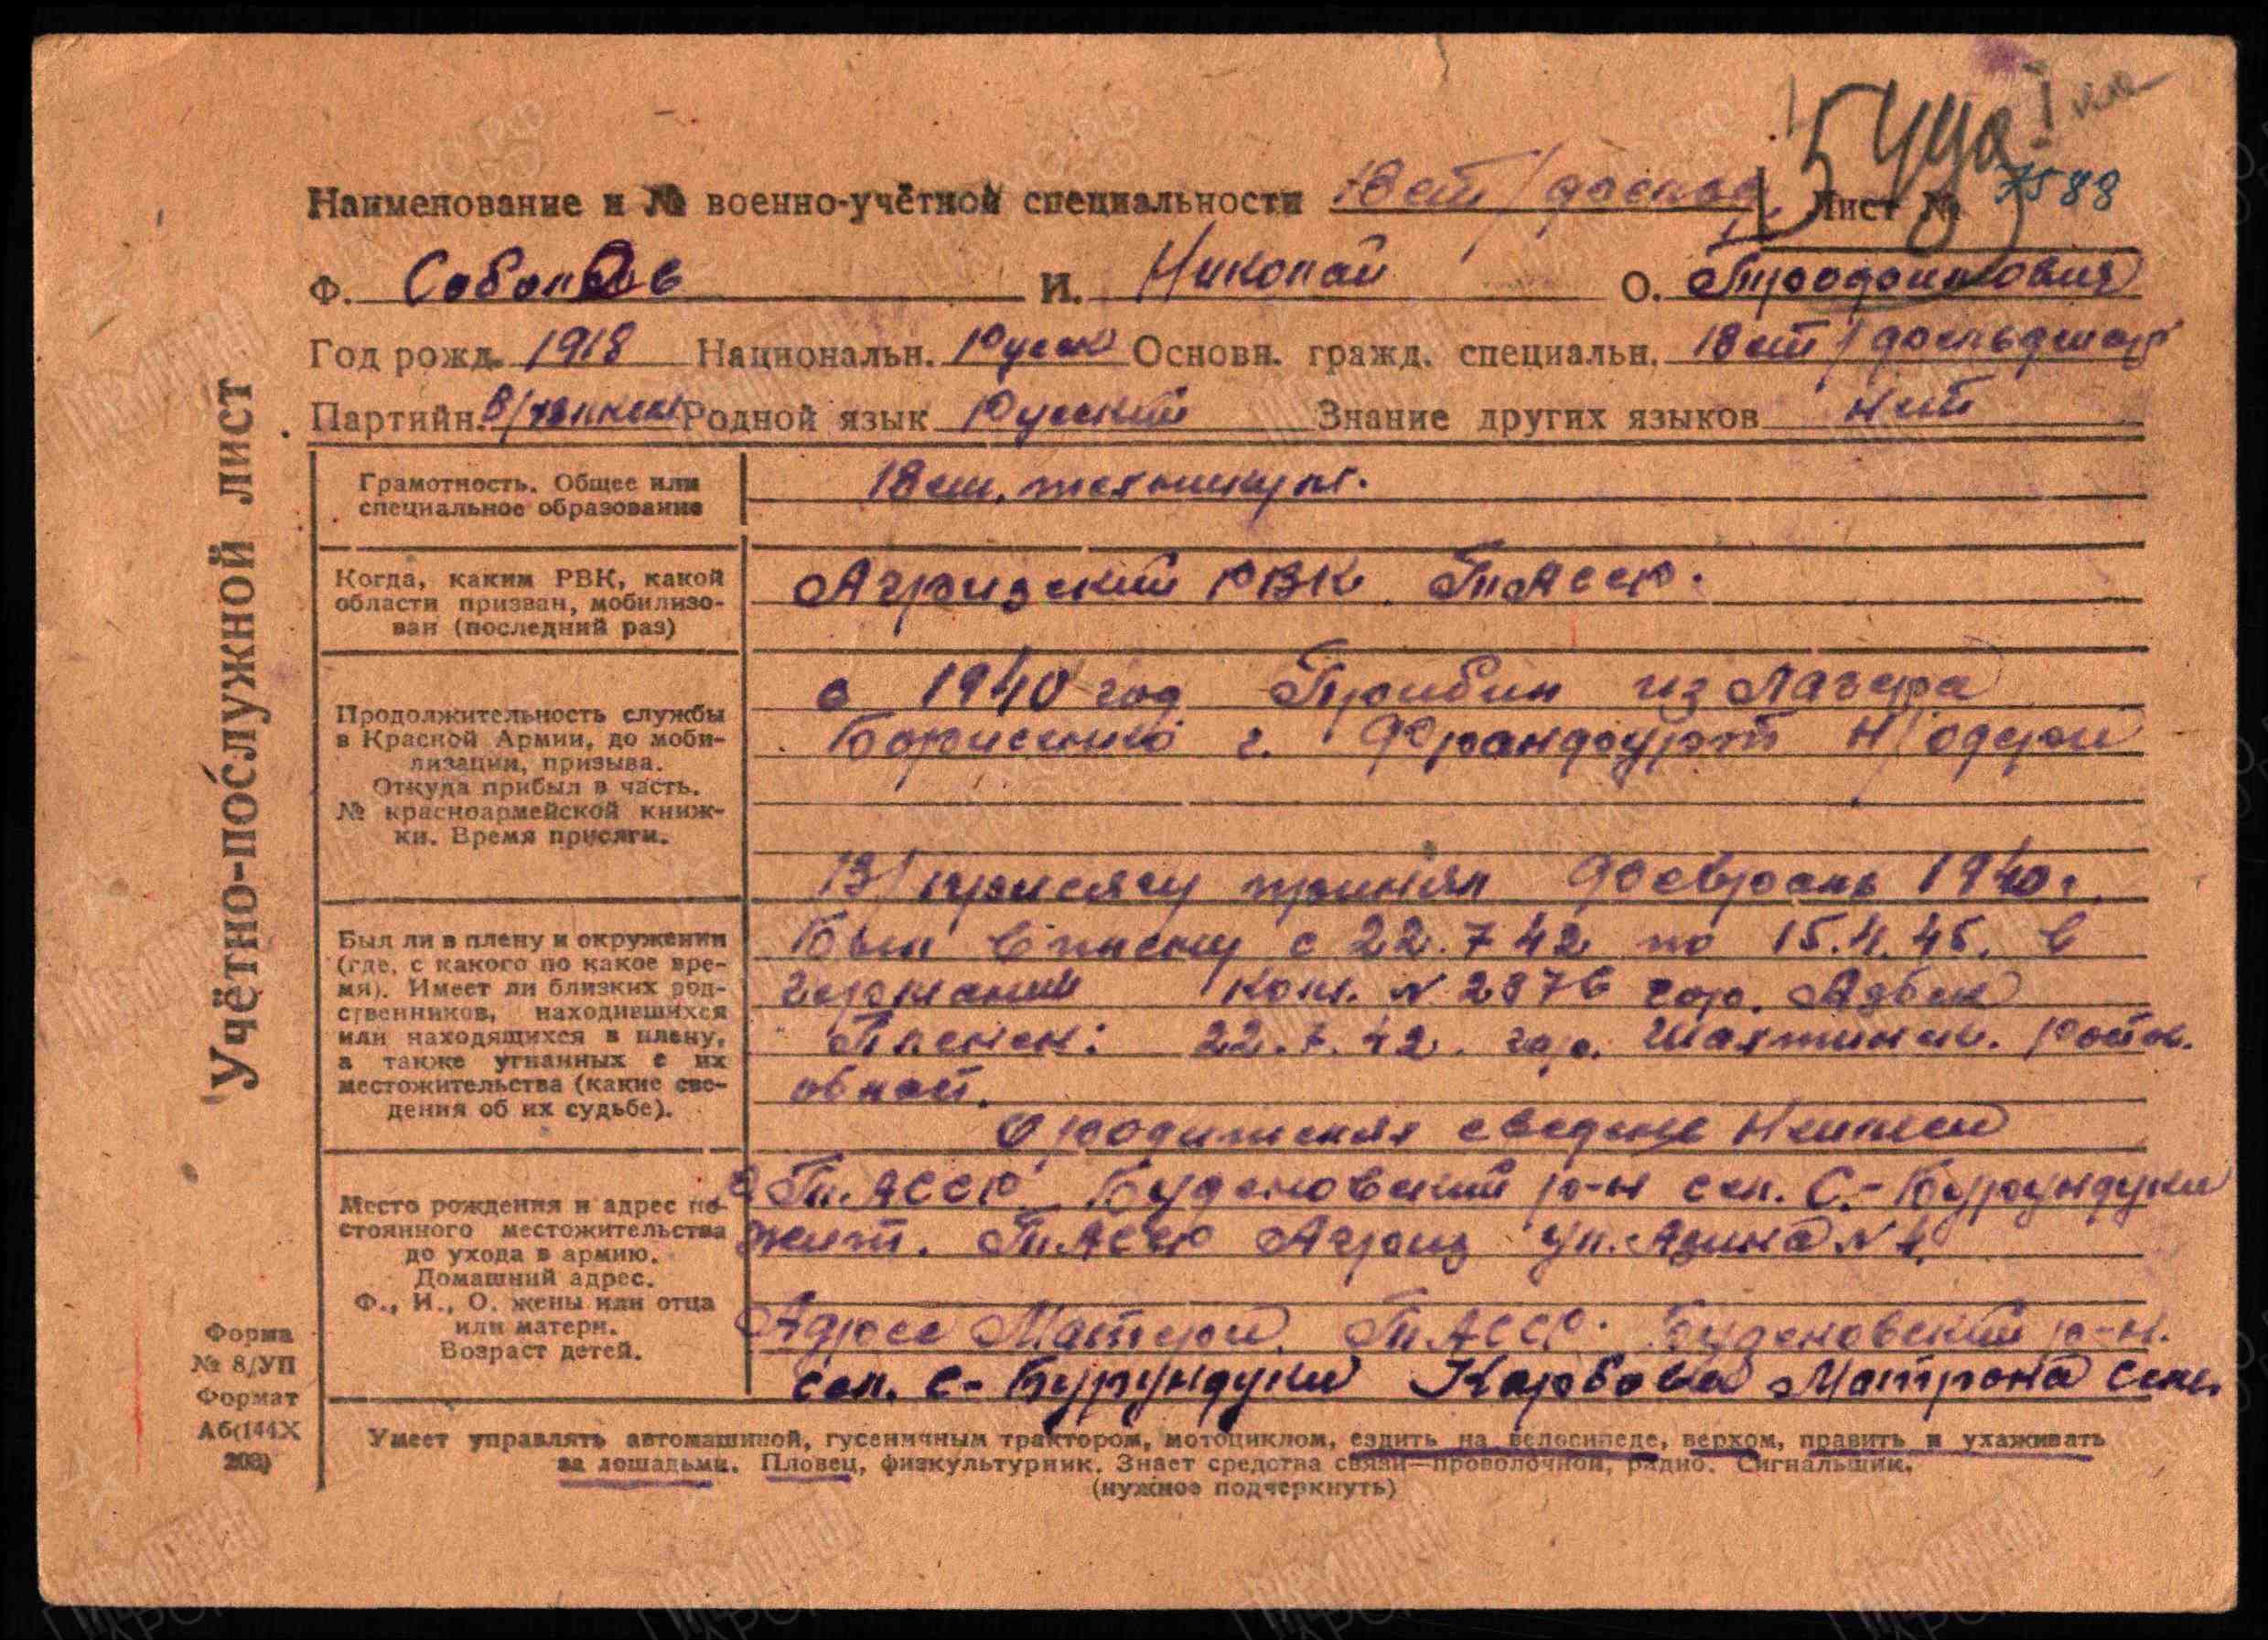 Наименование и № военно-учётной специальности Вет/фельд Лист № 7588
Ф. Соболев И. Николай О. Трофимович
Год рожд. 1918 Национальн. Русск Основн. гражд. специальн. Вет/фельдшер
Партийн. Родной язык Русский Знание других языков нет
Учётно-послужной лист
Грамотность. Общее или специальное образование
Вет. техникум.
Когда, каким РВК, какой области призван, мобилизован (последний раз)
Агризский РВК ТАССР.
Продолжительность службы в Красной Армии, до мобилизации, призыва.
Откуда прибыл в часть.
№ красноармейской книжки. Время присяги.
с 1940 год Прибыл из лагеря
г. Франкфурт н/одери
В/присягу принял Февраль 1940 г.
Был ли в плену и окружении (где, с какого по какое время). Имеет ли близких родственников, находившихся или находящихся в плену, а также угнанных с их местожительства (какие сведения об их судьбе).
Был в плену с 22.7 42 по 15.4.45. в
германии гор.
Пленен: 22.7.42. гор. Ростов.
О родителях
Место рождения и адрес постоянного местожительства до ухода в армию.
Домашний адрес.
Ф., И., О. жены или отца или матери.
Возраст детей.
ТАССР Буденовский р-н сел. С.-Бурундуки
жит. ТАССР Агрыз ул. Азина №
Адрес Матери. ТАССР. Буденовский р-н.
сел. С-Бурундуки Матрона
Форма № 8/УП Формат А6(144Х203)
Умеет управлять автомашиной, гусеничным трактором, мотоциклом, ездить на велосипеде, верхом, править и ухаживать
за лошадьми. Пловец, физкультурник. Знает средства связи—проволочной, радио. Сигнальщик.
(нужное подчеркнуть)